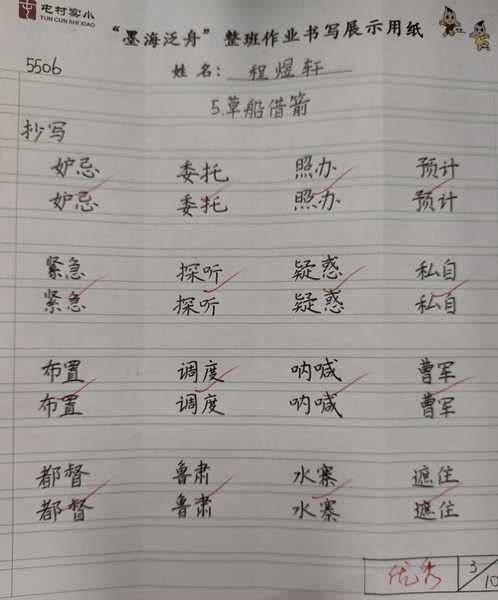 屯村实小
TUN CUN SHI XIAO
“墨海泛舟”整班作业书写展示用纸
5506
姓名：程煜轩
5.草船借箭
抄写
妒忌 委托 照办 预计
妒忌 委托 照办 预计
紧急 探听 疑惑 私自
紧急 探听 疑惑 私自
布置 调度 呐喊 曹军
布置 调度 呐喊 曹军
都督 鲁肃 水寨 遮住
都督 鲁肃 水寨 遮住
优秀 3/10